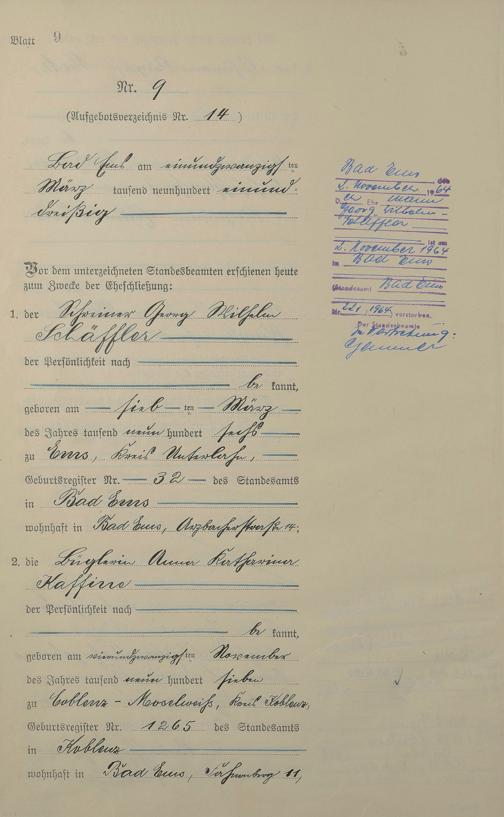 Blatt 9
Nr. 9
(Aufgebotsverzeichnis Nr. 14)
Bad Ems am einundzwanzigsten
März tausend neunhundert einund-
dreißig
Vor dem unterzeichneten Standesbeamten erschienen heute
zum Zwecke der Eheschließung:
1. der Schreiner Georg Wilhelm
Schäffler
der Persönlichkeit nach
be kannt,
geboren am sieb ten März
des Jahres tausend neun hundert sechs
zu Ems, Kreis Unterlahn,
Geburtsregister Nr. 32 des Standesamts
in Bad Ems
wohnhaft in Bad Ems, Arzbacherstraße 14;
2. die Büglerin Anna Katharina
Kaffine
der Persönlichkeit nach
be kannt,
geboren am vierundzwanzigsten November
des Jahres tausend neun hundert sieben
zu Coblenz - Moselweiß, Kreis Koblenz,
Geburtsregister Nr. 1265 des Standesamts
in Koblenz
wohnhaft in Bad Ems, 11,
Bad Ems den
2. November 1964
D er Ehe mann
Georg Wilhelm
ist am
2. November 1964
in Bad Ems
(Standesamt Bad Ems
Nr. 221, 1964) verstorben.
Der Standesbeamte
In Vertretung: